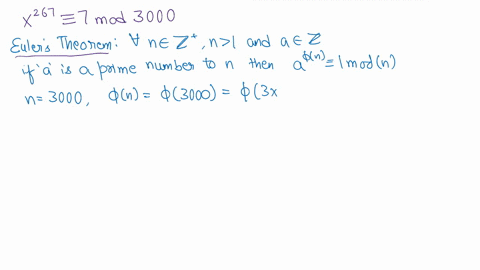 x^267 ≡ 7 mod 3000
Euler's Theorem: ∀ n ∈ Z⁺, n>1 and a ∈ Z
if 'a' is a prime number to n then a^ϕ(n) ≡ 1 mod (n)
n = 3000, ϕ(n) = ϕ(3000) = ϕ(3x